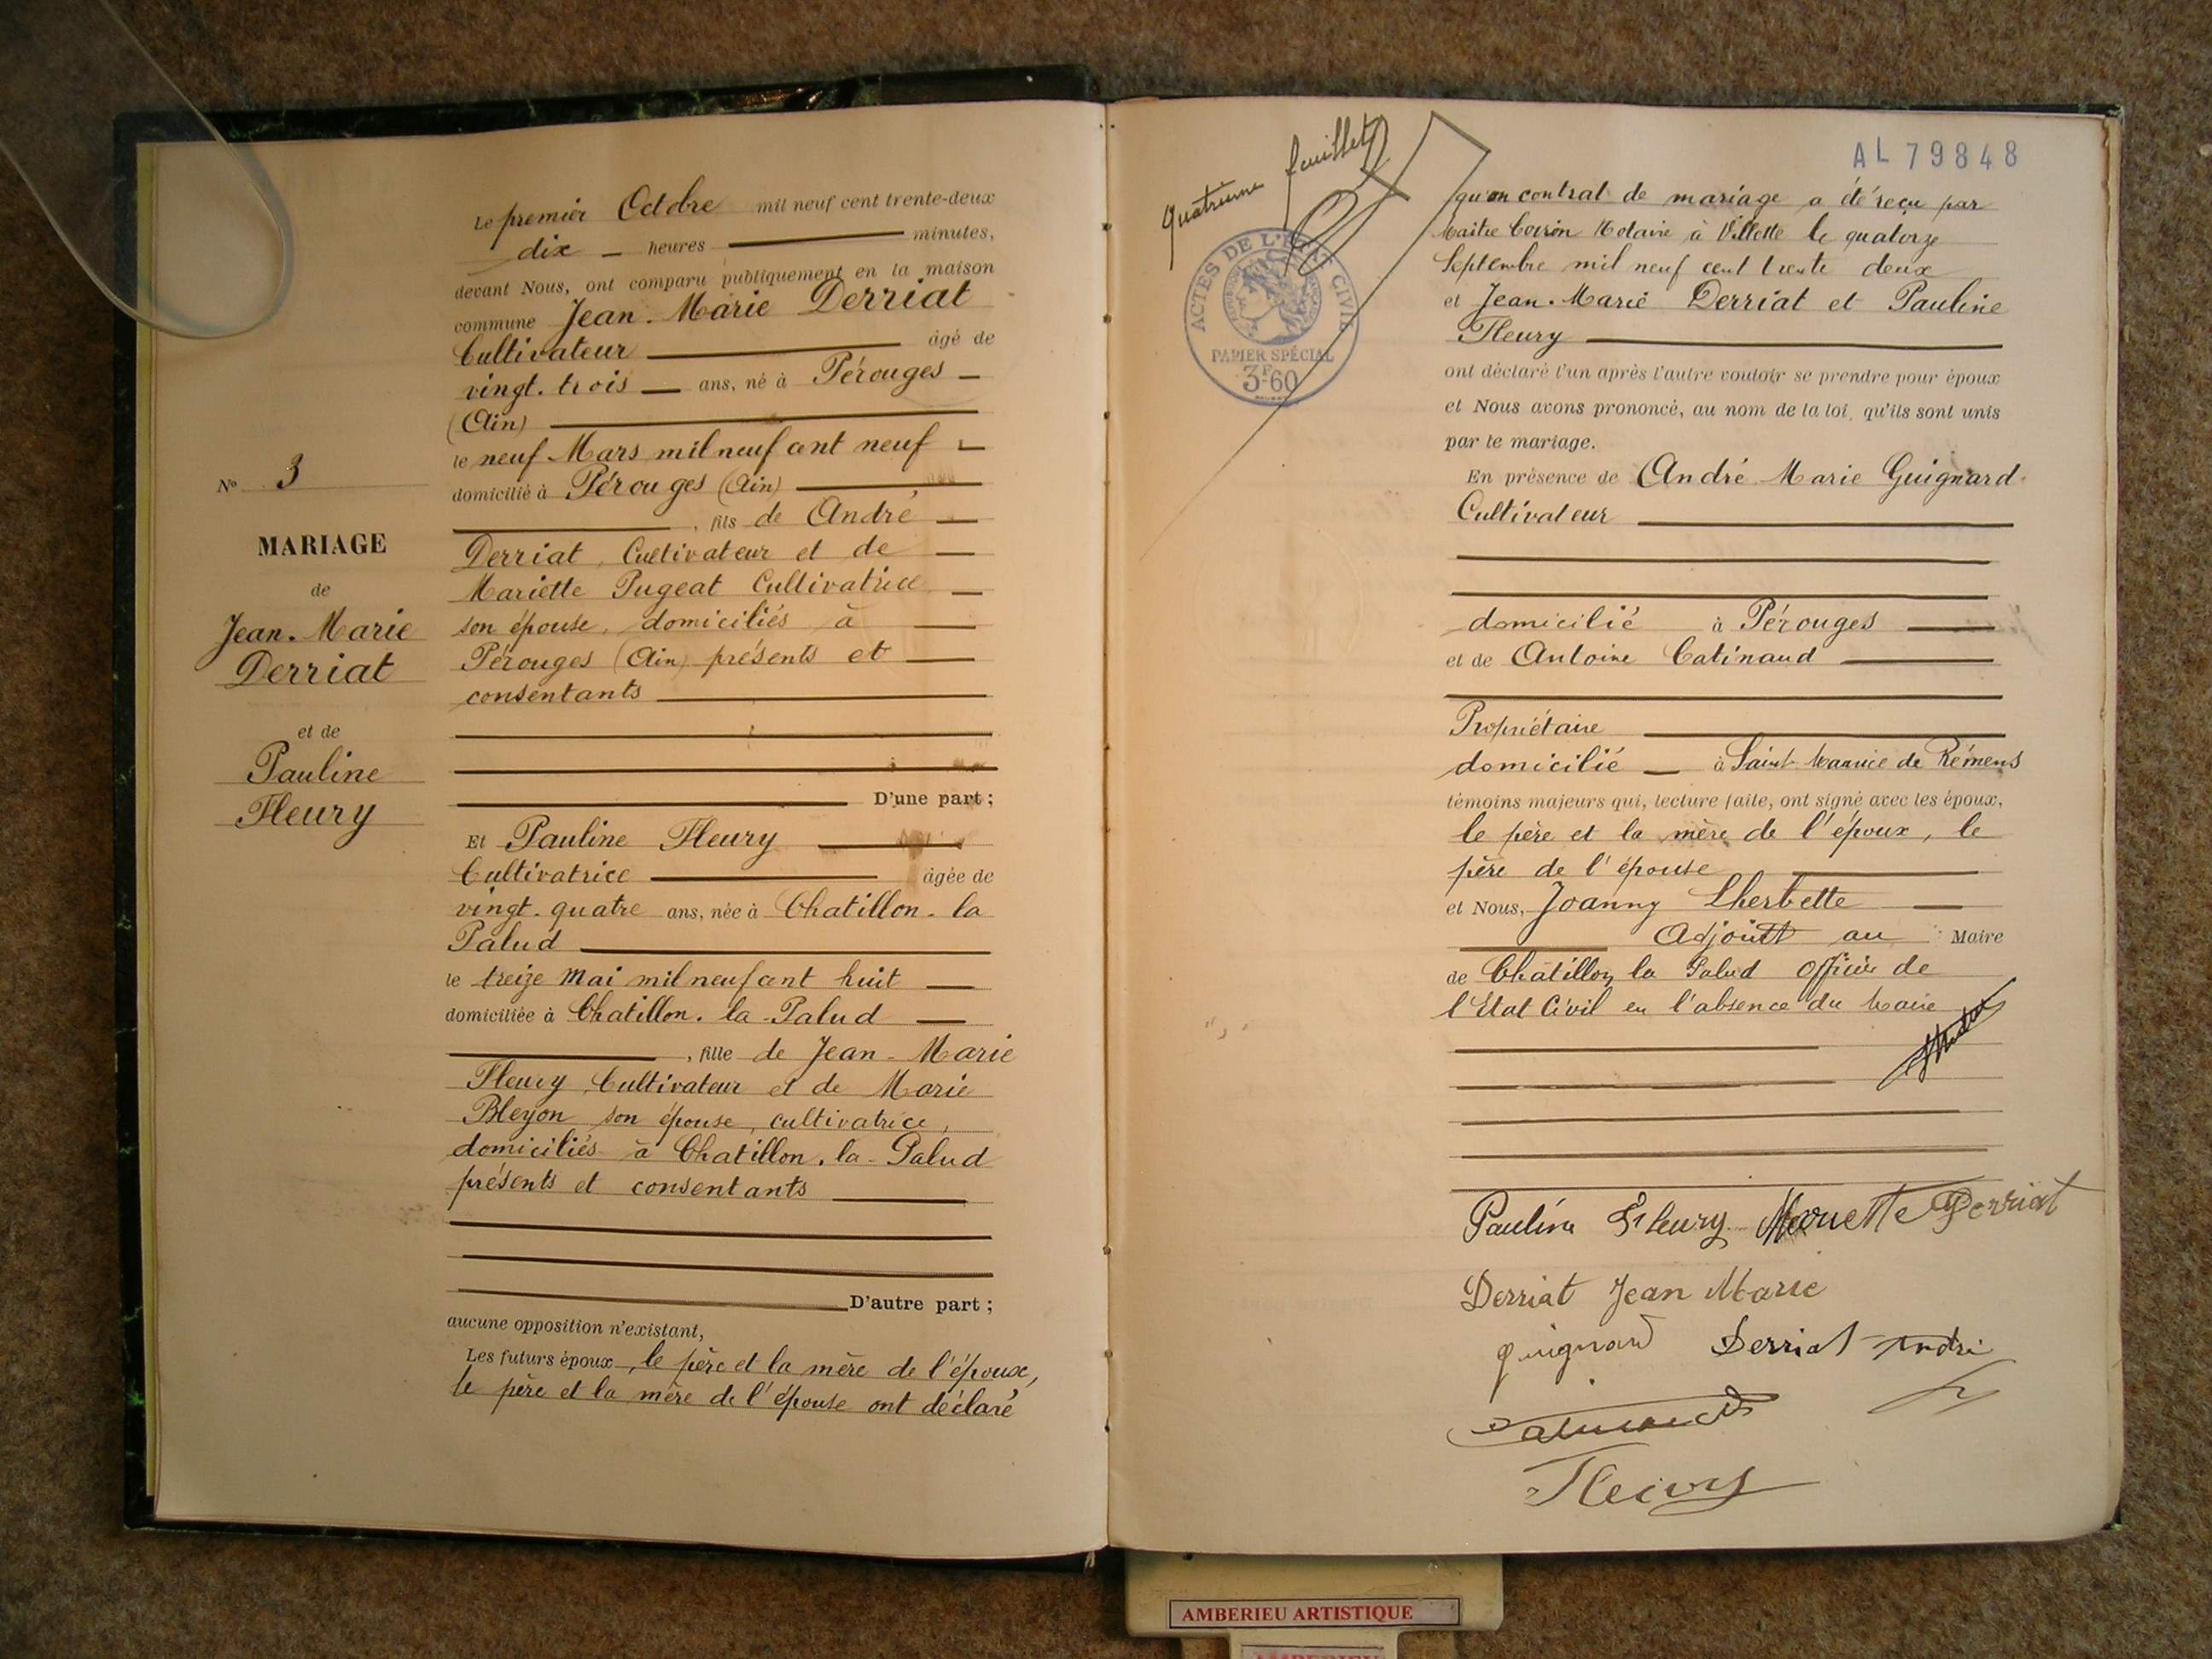 Le premier Octobre mil neuf cent trente-deux
dix heures minutes,
devant Nous, ont comparu publiquement en la maison
commune Jean-Marie Derriat
Cultivateur âgé de
vingt-trois ans, né à Pérouges
(Ain)
le neuf Mars mil neuf cent neuf
domicilié à Pérouges (Ain)
, fils de André
Derriat, Cultivateur et de
Mariette Pugeat Cultivatrice
son épouse, domiciliés à
Pérouges (Ain) présents et
consentants
D'une part ;
N° 3
MARIAGE
de
Jean-Marie
Derriat
et de
Pauline
Fleury
Et Pauline Fleury
Cultivatrice âgée de
vingt-quatre ans, née à Chatillon-la
Palud
le treize Mai mil neuf cent huit
domiciliée à Chatillon-la-Palud
, fille de Jean-Marie
Fleury Cultivateur et de Marie
Bleyon son épouse, cultivatrice,
domiciliés à Chatillon-la-Palud
présents et consentants
D'autre part ;
aucune opposition n'existant,
Les futurs époux, le père et la mère de l'époux,
le père et la mère de l'épouse ont déclaré
quatrième feuillet
ACTES DE L'ETAT CIVIL
PAPIER SPÉCIAL
3F60
AL 79848
qu'un contrat de mariage a été reçu par
Maître Notaire à Villette le quatorze
Septembre mil neuf cent trente deux
et Jean-Marie Derriat et Pauline
Fleury
ont déclaré l'un après l'autre vouloir se prendre pour époux
et Nous avons prononcé, au nom de la loi, qu'ils sont unis
par le mariage.
En présence de André Marie Guignard
Cultivateur
domicilié à Pérouges
et de Antoine Catinaud
Propriétaire
domicilié à Saint Maurice de Rémens
témoins majeurs qui, lecture faite, ont signé avec les époux,
le père et la mère de l'époux, le
père de l'épouse
et Nous, Joanny Lherbette
Adjoint au Maire
de Châtillon la Palud Officier de
l'Etat Civil en l'absence du Maire
Pauline Fleury Mariette Derriat
Derriat Jean Marie
guignard Derriat André
Catinaud
Fleury
AMBERIEU ARTISTIQUE
AMBERIEU